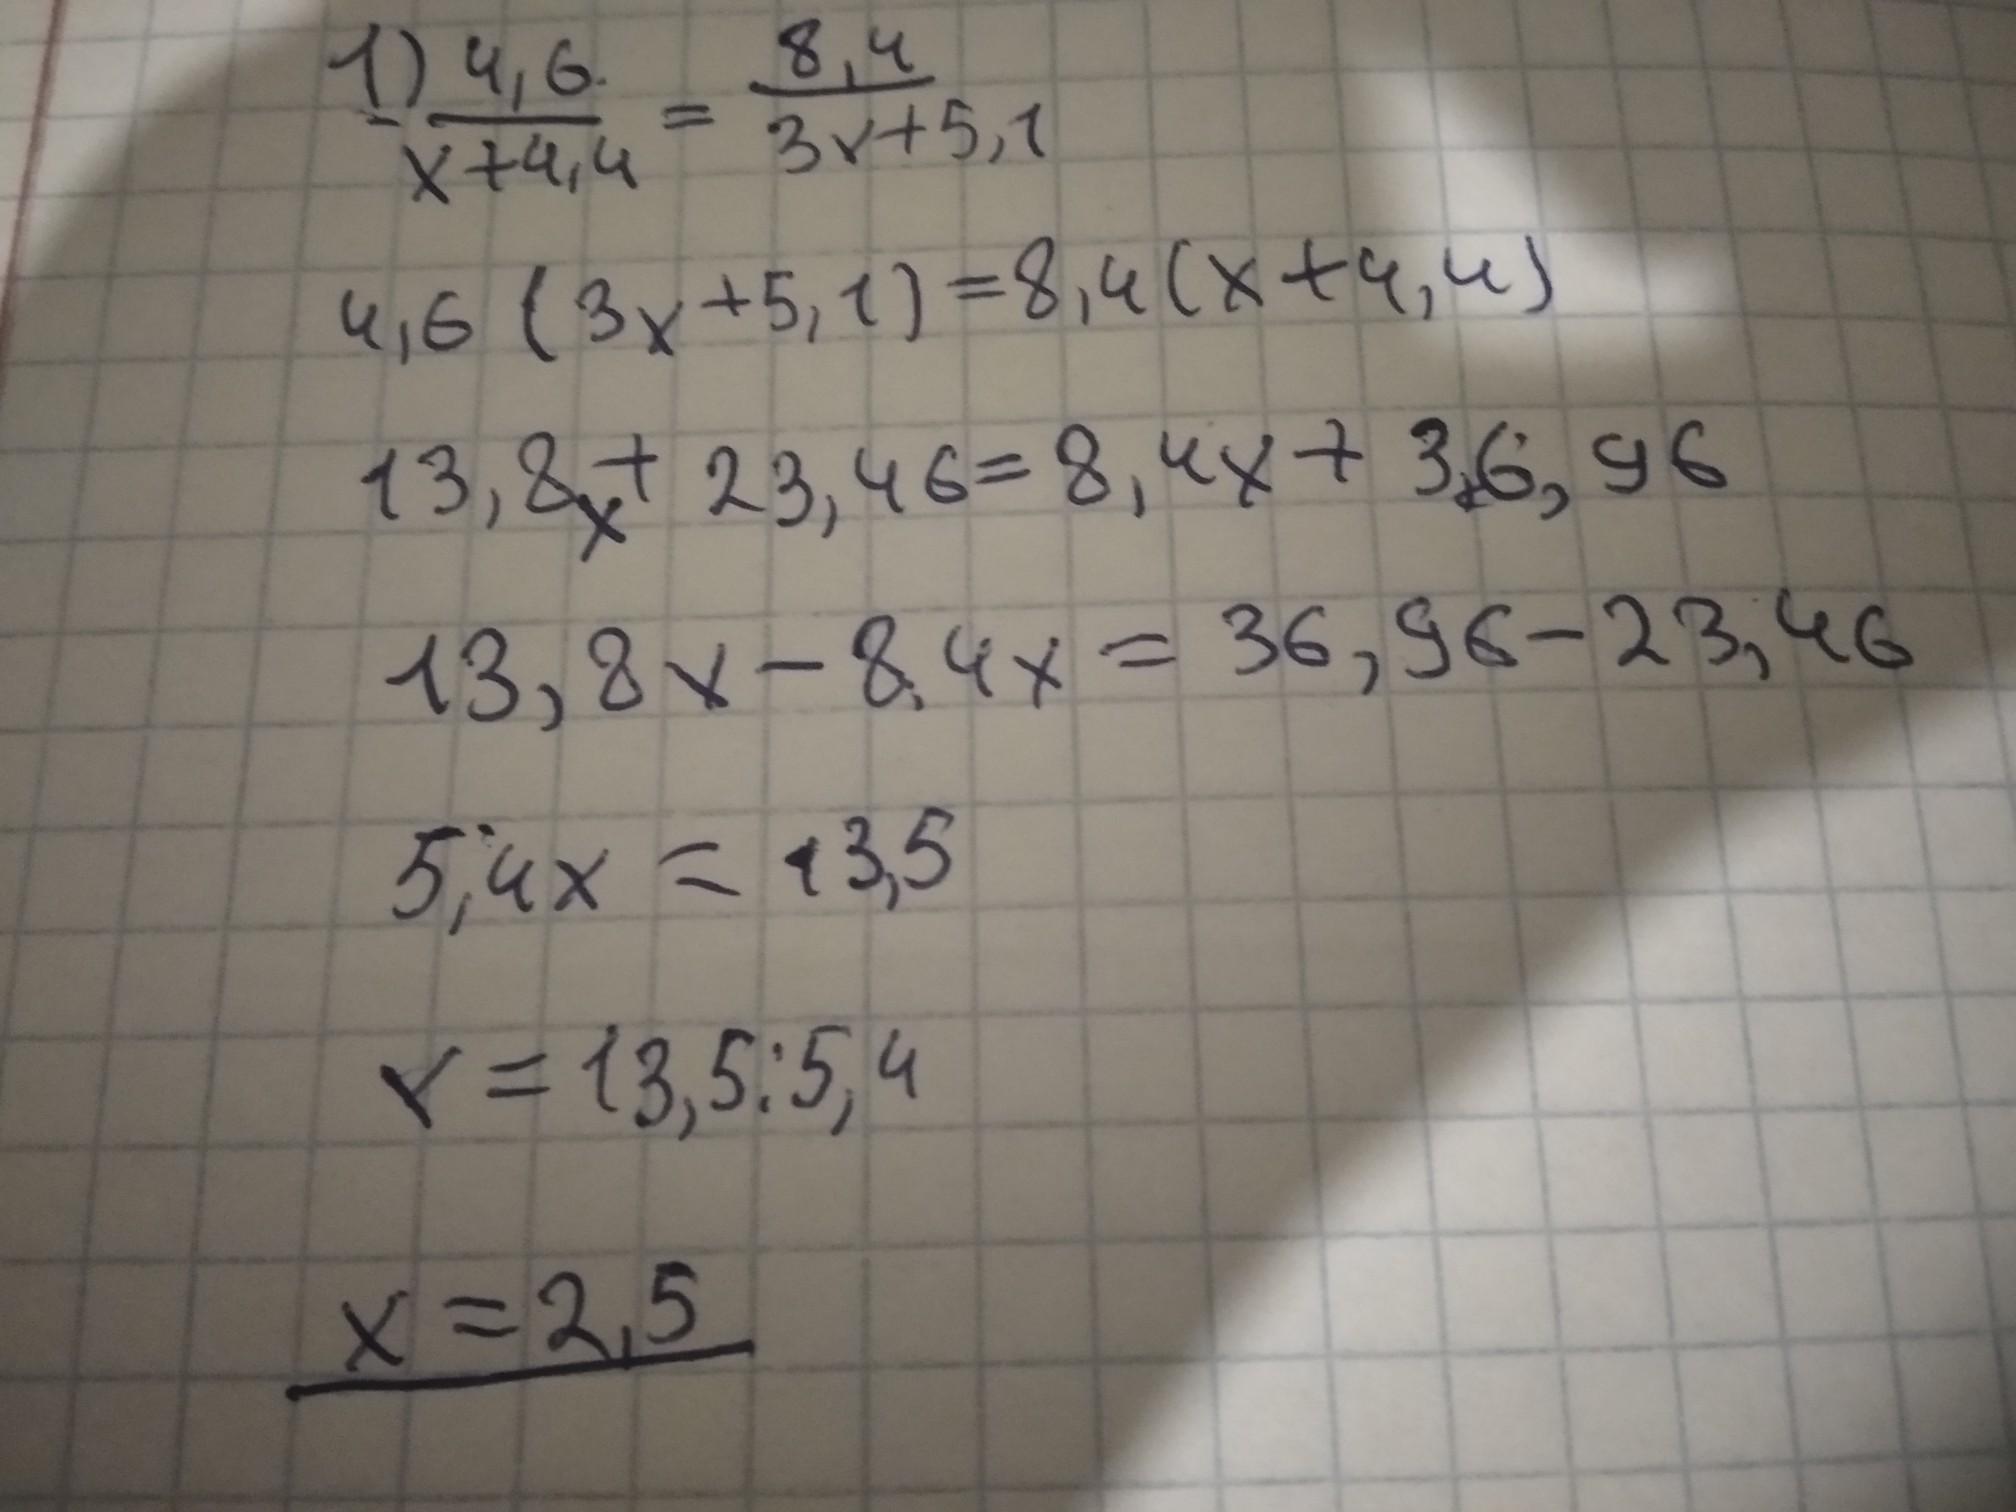 1) 4,6 / x+4,4 = 8,4 / 3x+5,1
4,6 (3x+5,1)=8,4(x+4,4)
13,8x+23,46=8,4x+36,96
13,8x-8,4x=36,96-23,46
5,4x=13,5
x=13,5:5,4
x=2,5